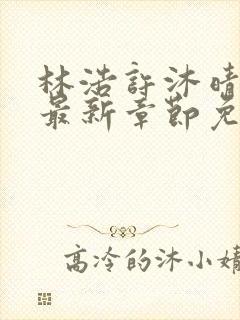 林浩许沐晴
最新章节免
高冷的沐小婧